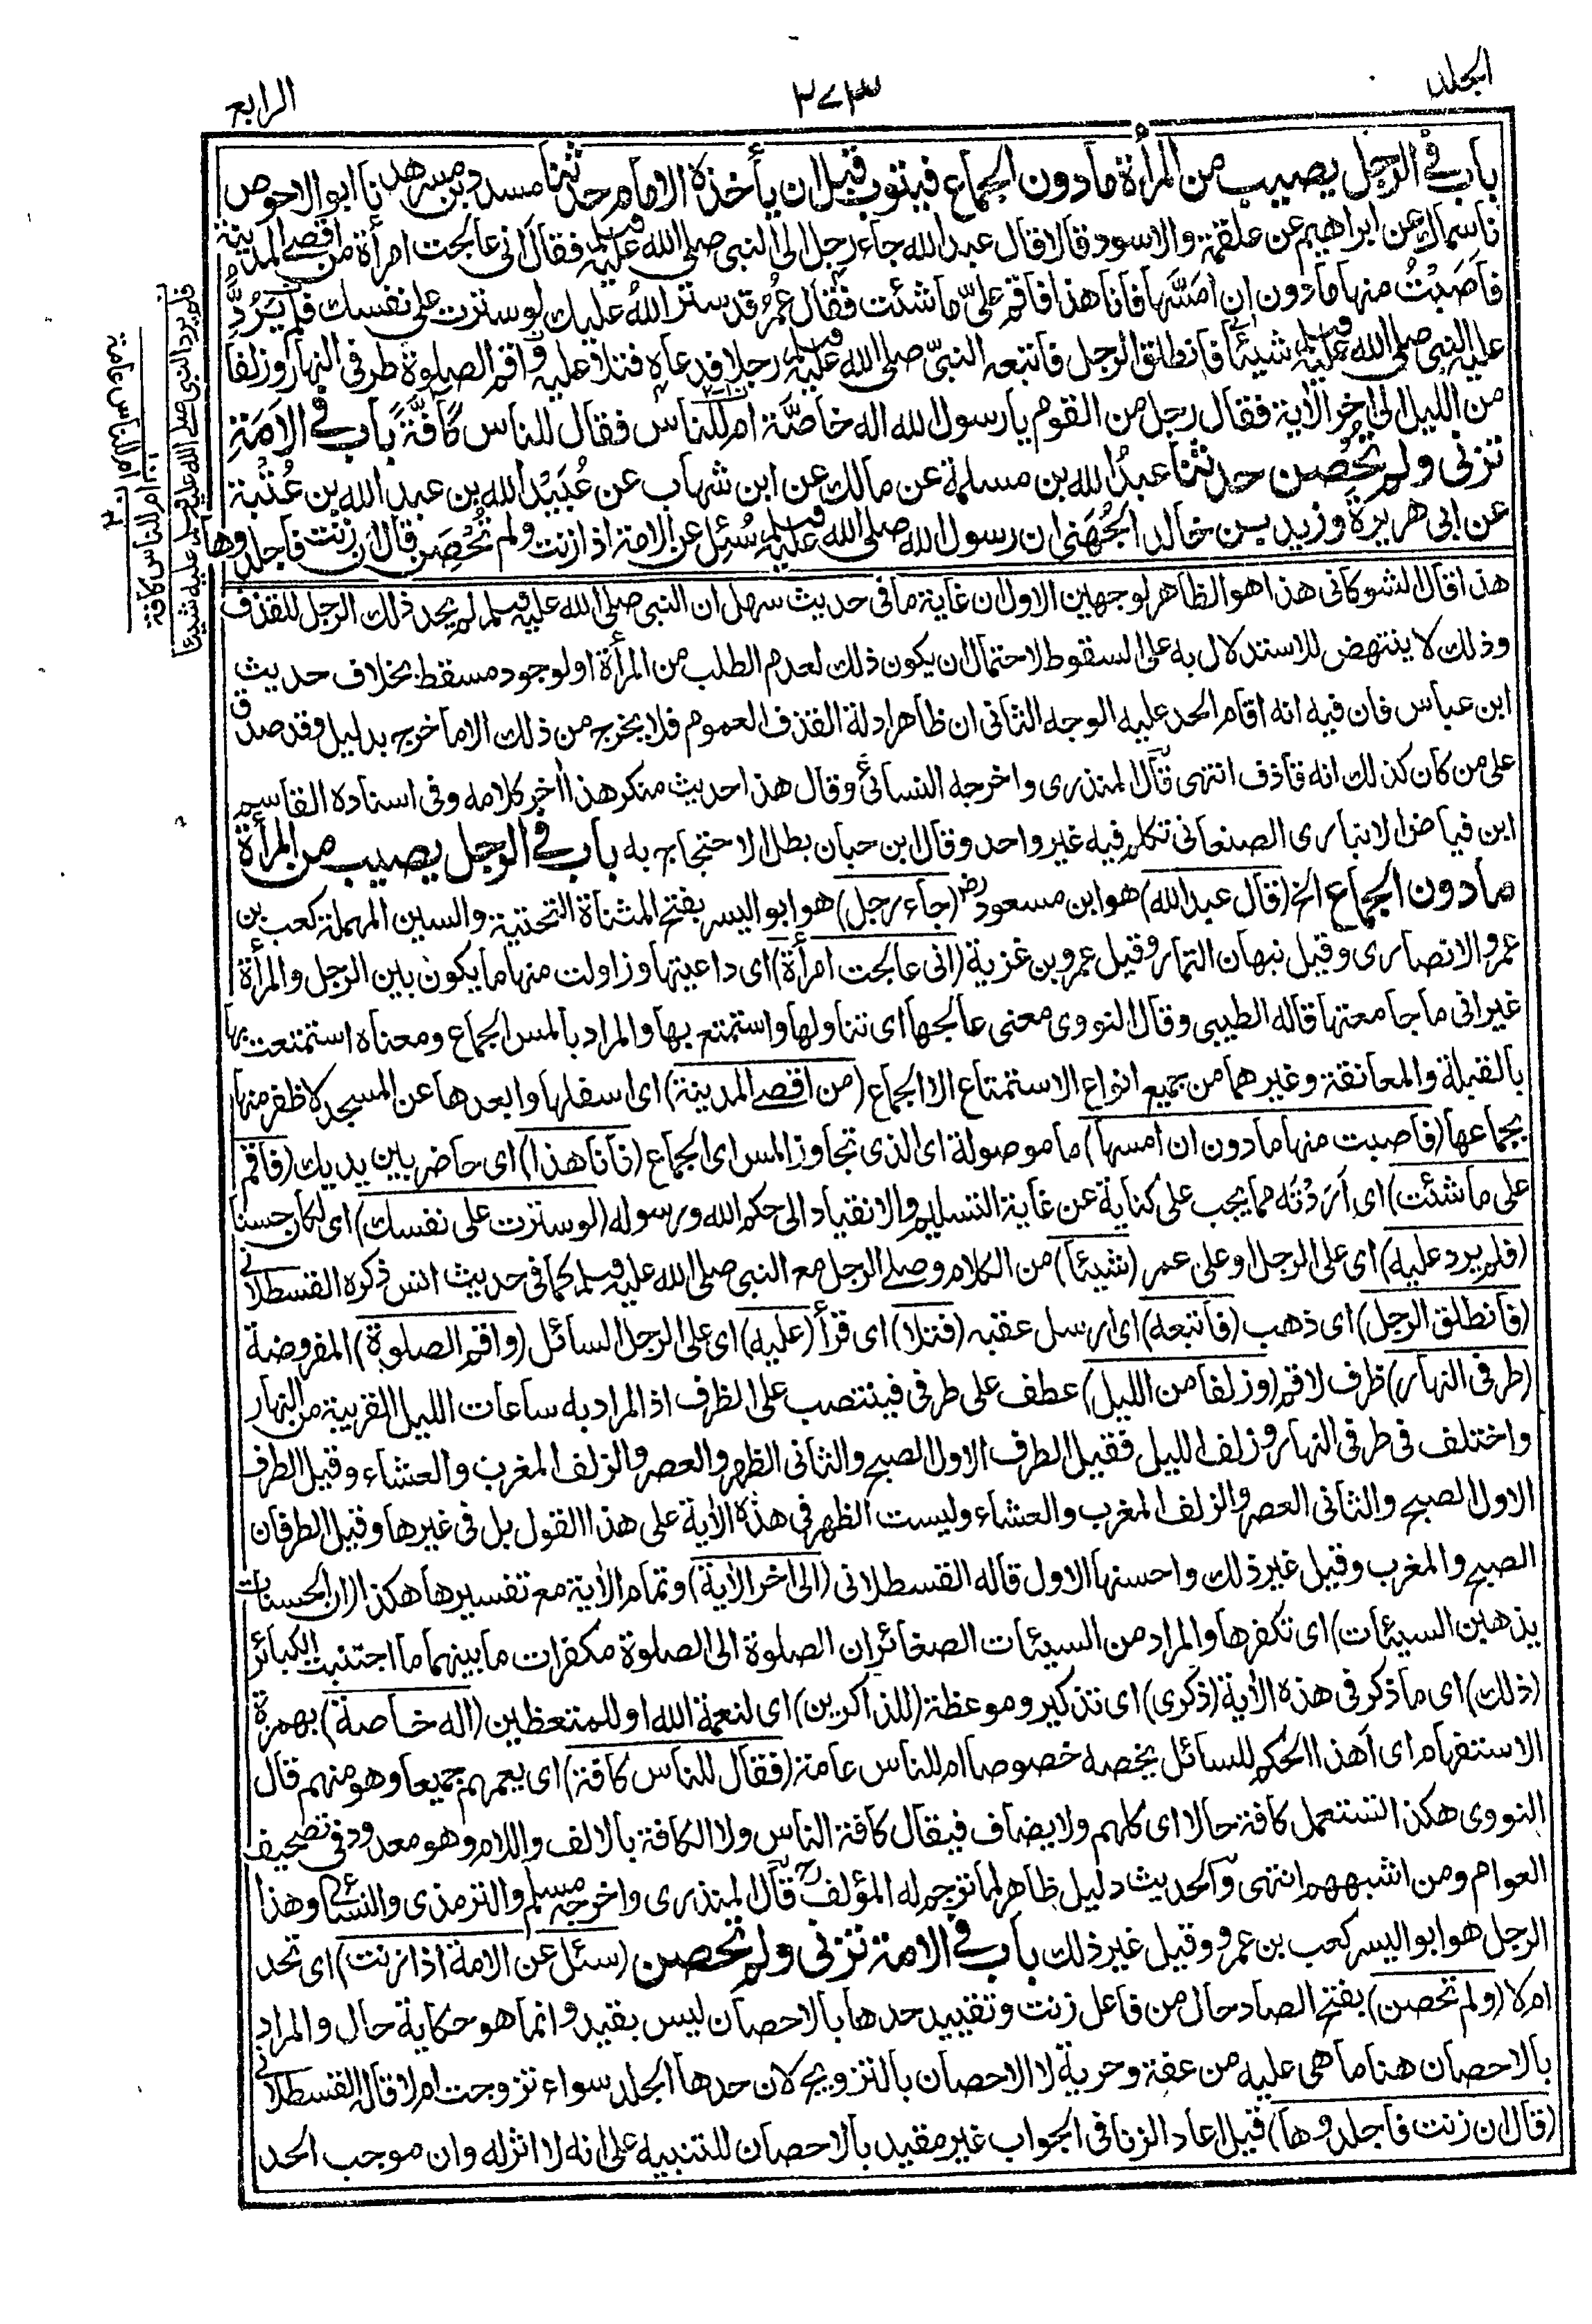 الجلد
٢٧٣
الرابع
باب في الرجل يصيب من المرأة مادون الجماع فيتوب قبل ان يأخذه الامام حدثنا مسدد بن مسرهد نا ابو الاحوص
نا سماك عن ابراهيم عن علقمة والاسود قالا قال عبد الله جاء رجل الى النبي صلى الله عليه وسلم فقال انى عالجت امرأة من اقصى المدينة
فأصبت منها مادون ان امسها فانا هذا فاقم علىّ ما شئت فقال عمر قد ستر الله عليك لو سترت على نفسك فلم يردّ
عليه النبي صلى الله عليه وسلم شيئا فانطلق الرجل فاتبعه النبىّ صلى الله عليه وسلم رجلا فدعاه فتلا عليه واقم الصلوة طرفى النهار وزلفا
من الليل الى اخر الاية فقال رجل من القوم يا رسول الله اله خاصّة ام للناس فقال للناس كافّة باب في الامة
تزنى ولم تحصن حدثنا عبد الله بن مسلمة عن مالك عن ابن شهاب عن عبيد الله بن عبد الله بن عتبة
عن ابى هريرة وزيد بن خالد الجهنى ان رسول الله صلى الله عليه وسلم سئل عن الامة اذا زنت ولم تحصن قال ان زنت فاجلدوها
فلم يرد النبى صلى الله عليه وسلم عليه شيئا
ام للناس كافة
ام للناس عامة
هذا قال الشوكانى هذا هو الظاهر لوجهين الاول ان غاية ما فى حديث سهل ان النبى صلى الله عليه وسلم لم يحد ذلك الرجل للقذف
وذلك لا ينتهض للاستدلال به على السقوط لاحتمال ان يكون ذلك لعدم الطلب من المرأة او لوجود مسقط بخلاف حديث
ابن عباس فان فيه انه اقام الحد عليه الوجه الثانى ان ظاهر ادلة القذف العموم فلا يخرج من ذلك الا ما خرج بدليل وقد صدق
على من كان كذلك انه قاذف انتهى قال المنذرى واخرجه النسائى وقال هذا حديث منكر هذا اخر كلامه وفى اسناده القاسم
ابن فياض الانبارى الصنعانى تكلم فيه غير واحد وقال ابن حبان بطل الاحتجاج به باب في الرجل يصيب من المرأة
مادون الجماع الخ (قال عبد الله) هو ابن مسعود رض (جاء رجل) هو ابو اليسر بفتح المثناة التحتية والسين المهملة كعب بن
عمرو الانصارى وقيل نبهان التمار وقيل عمرو بن غزية (انى عالجت امرأة) اى داعبتها وزاولت منها ما يكون بين الرجل والمرأة
غير انى ما جامعتها قاله الطيبى وقال النووى معنى عالجها اى تناولها واستمتع بها والمراد بالمس الجماع ومعناه استمتعت بها
بالقبلة والمعانقة وغيرهما من جميع انواع الاستمتاع الا الجماع (من اقصى المدينة) اى اسفلها وابعدها عن المسجد لاظفر منها
بجماعها (فاصبت منها مادون ان امسها) ما موصولة اى الذى تجاوز المس اى الجماع (فانا هذا) اى حاضر بين يديك (فاقم
على ما شئت) اى اردته مما يجب على كناية عن غاية التسليم والانقياد الى حكم الله ورسوله (لو سترت على نفسك) اى لكان حسنا
(فلم يرد عليه) اى على الرجل او على عمر (شيئا) من الكلام وصلى الرجل مع النبى صلى الله عليه وسلم كما فى حديث انس ذكره القسطلانى
(فانطلق الرجل) اى ذهب (فاتبعه) اى ارسل عقبه (فتلا) اى قرأ (عليه) اى على الرجل السائل (واقم الصلوة) المفروضة
(طرفى النهار) ظرف لاقم (وزلفا من الليل) عطف على طرفى فينتصب على الظرف اذ المراد به ساعات الليل القريبة من النهار
واختلف فى طرفى النهار وزلف الليل فقيل الطرف الاول الصبح والثانى الظهر والعصر والزلف المغرب والعشاء وقيل الطرف
الاول الصبح والثانى العصر والزلف المغرب والعشاء وليست الظهر فى هذه الاية على هذا القول بل فى غيرها وقيل الطرفان
الصبح والمغرب وقيل غير ذلك واحسنها الاول قاله القسطلانى (الى اخر الاية) وتمام الاية مع تفسيرها هكذا (ان الحسنات
يذهبن السيئات) اى تكفرها والمراد من السيئات الصغائر ان الصلوة الى الصلوة مكفرات ما بينهما ما اجتنبت الكبائر
(ذلك) اى ما ذكر فى هذه الاية (ذكرى) اى تذكير وموعظة (للذاكرين) اى لنعمة الله او للمتعظين (اله خاصة) بهمزة
الاستفهام اى أهذا الحكم للسائل يخصه خصوصا ام للناس عامة (فقال للناس كافة) اى يعمهم جميعا وهو منهم قال
النووى هكذا تستعمل كافة حالا اى كلهم ولا يضاف فيقال كافة الناس ولا الكافة بالالف واللام وهو معدود فى تصحيف
العوام ومن اشبههم انتهى والحديث دليل ظاهر لما ترجم له المؤلف قال المنذرى واخرجه مسلم والترمذى والنسائى وهذا
الرجل هو ابو اليسر كعب بن عمرو وقيل غير ذلك باب في الامة تزنى ولم تحصن (سئل عن الامة اذا زنت) اى تحد
ام لا (ولم تحصن) بفتح الصاد حال من فاعل زنت وتقييد حدها بالاحصان ليس بقيد وانما هو حكاية حال والمراد
بالاحصان هنا ما هى عليه من عفة وحرية لا الاحصان بالتزويج لان حدها الجلد سواء تزوجت ام لا قاله القسطلانى
(قال ان زنت فاجلدوها) قيل اعاد الزنا فى الجواب غير مقيد بالاحصان للتنبيه على انه لا اثر له وان موجب الحد